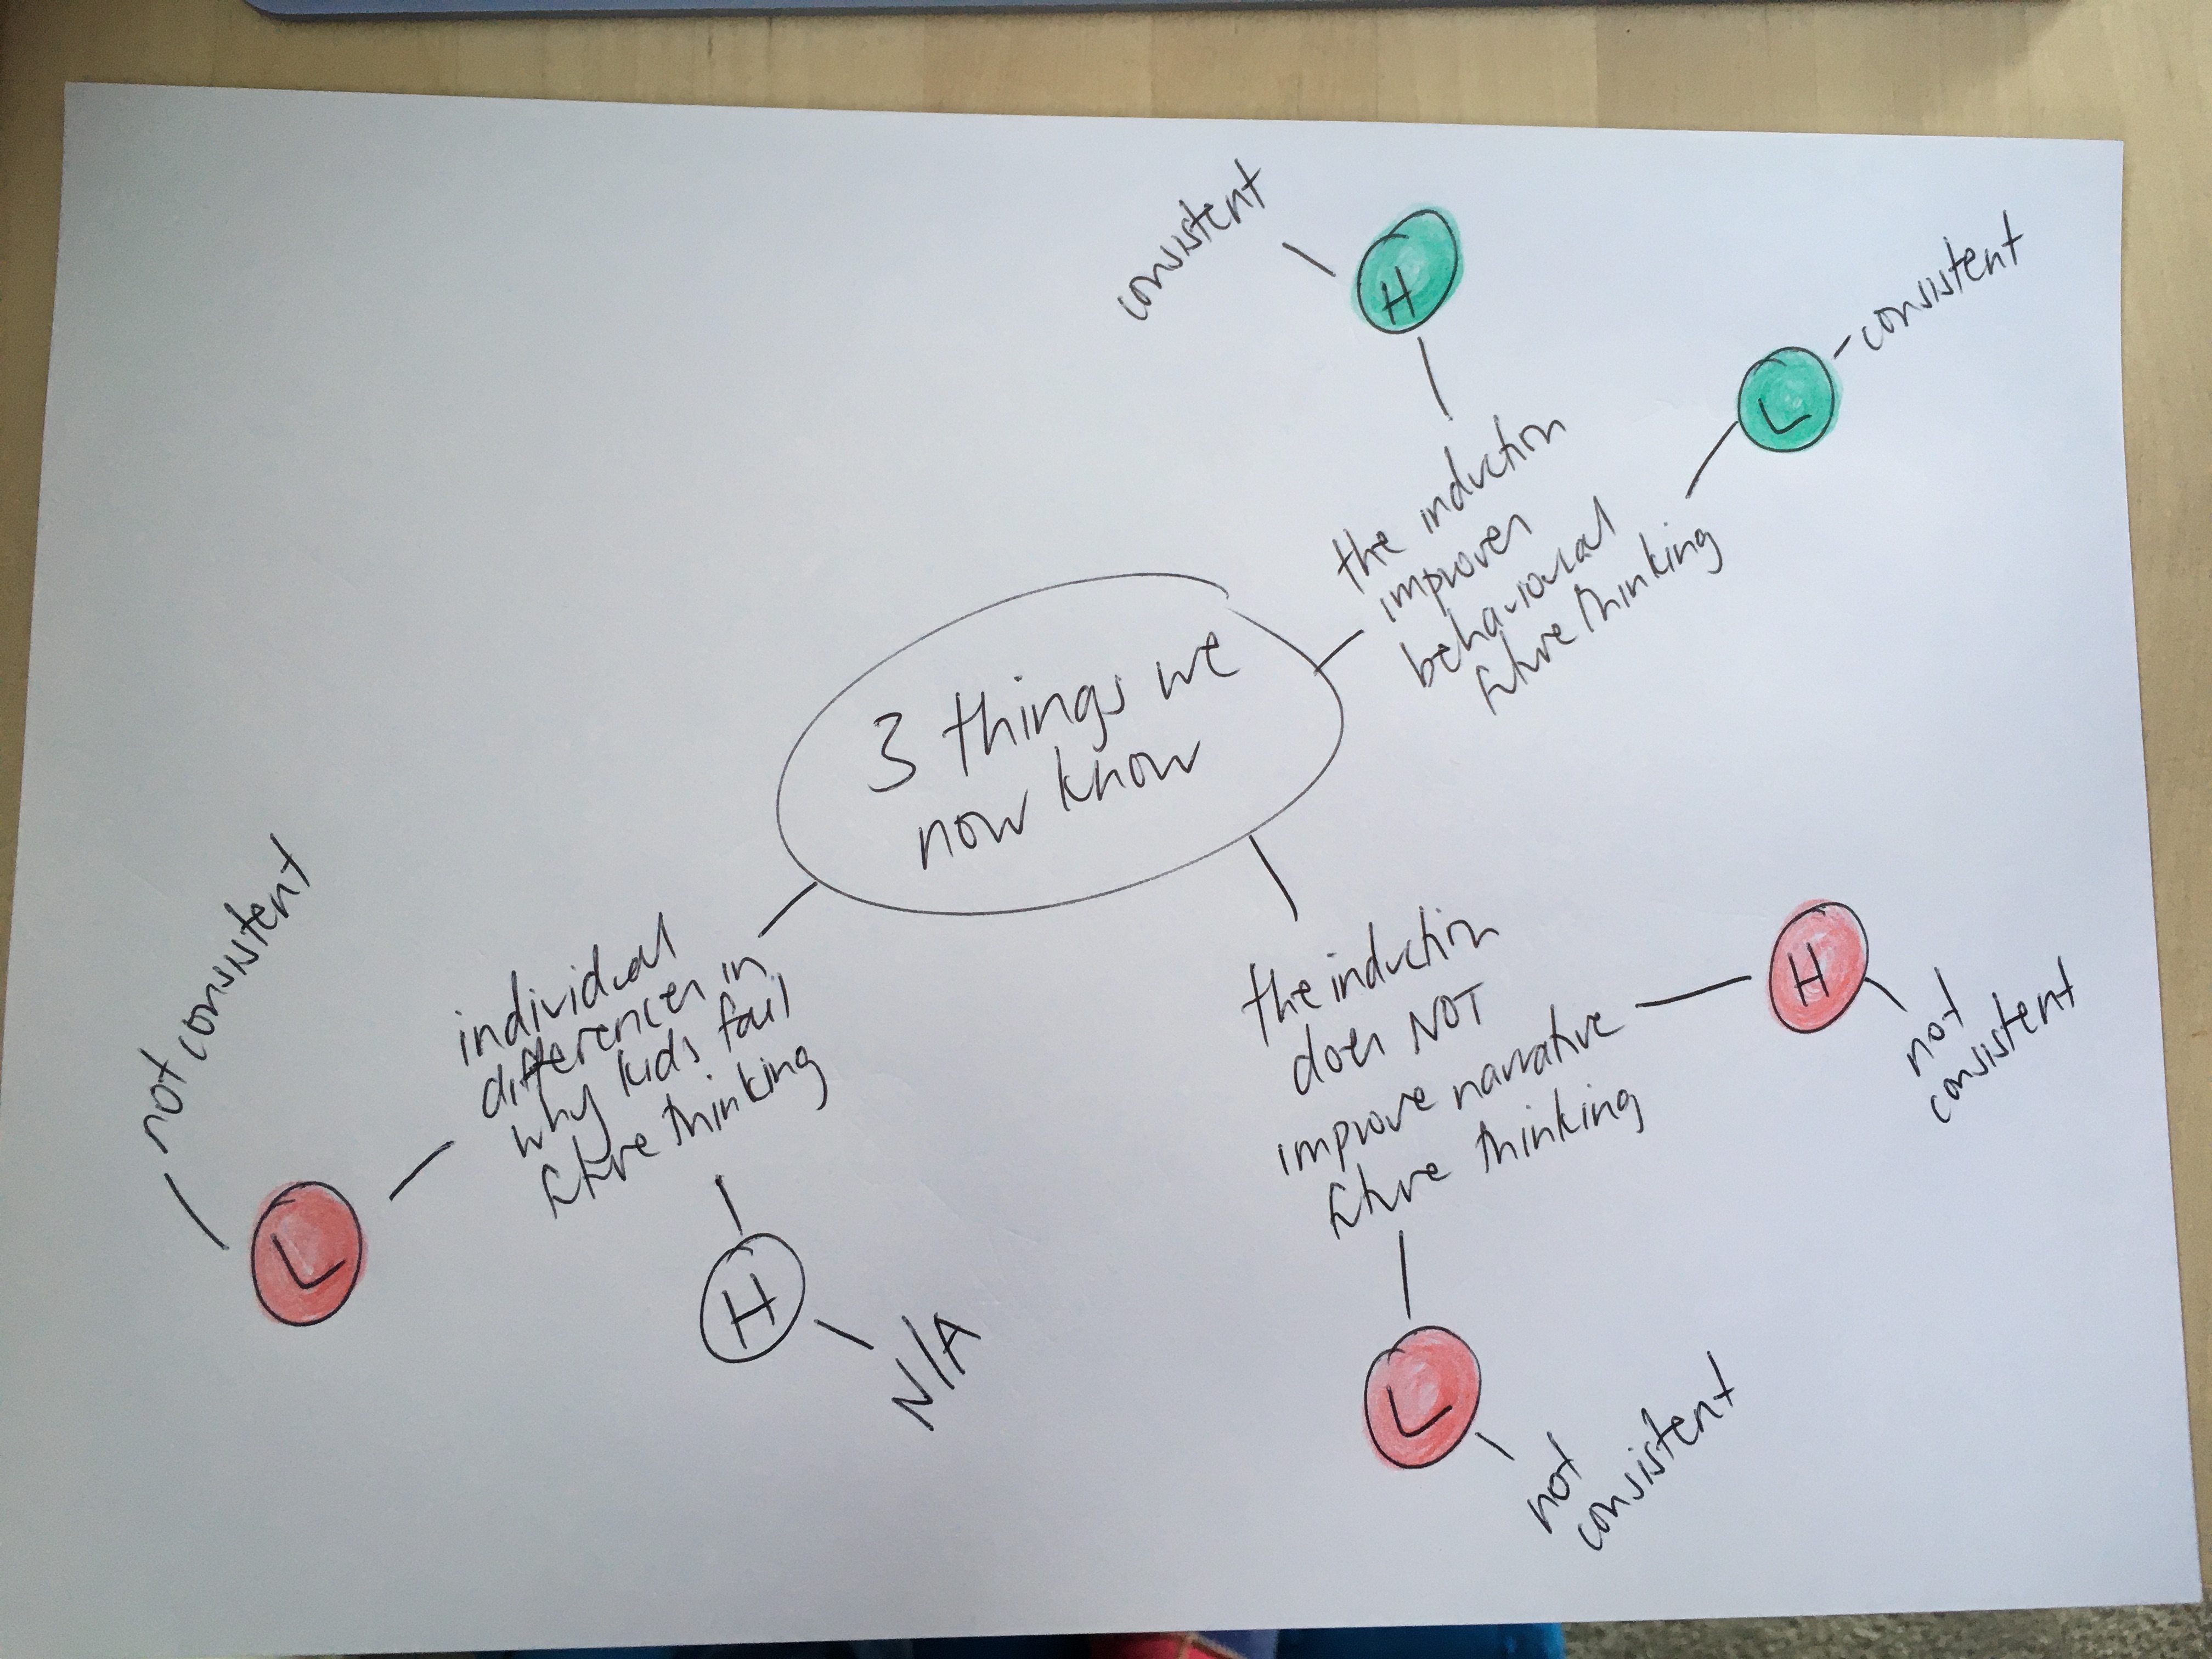 3 things we
now know
consistent
H
L
consistent
the induction
improves
behavioural
future thinking
the induction
does NOT
improve narrative
future thinking
H
not
consistent
L
not
consistent
individual
differences in
why kids fail
future thinking
L
not consistent
H
N/A